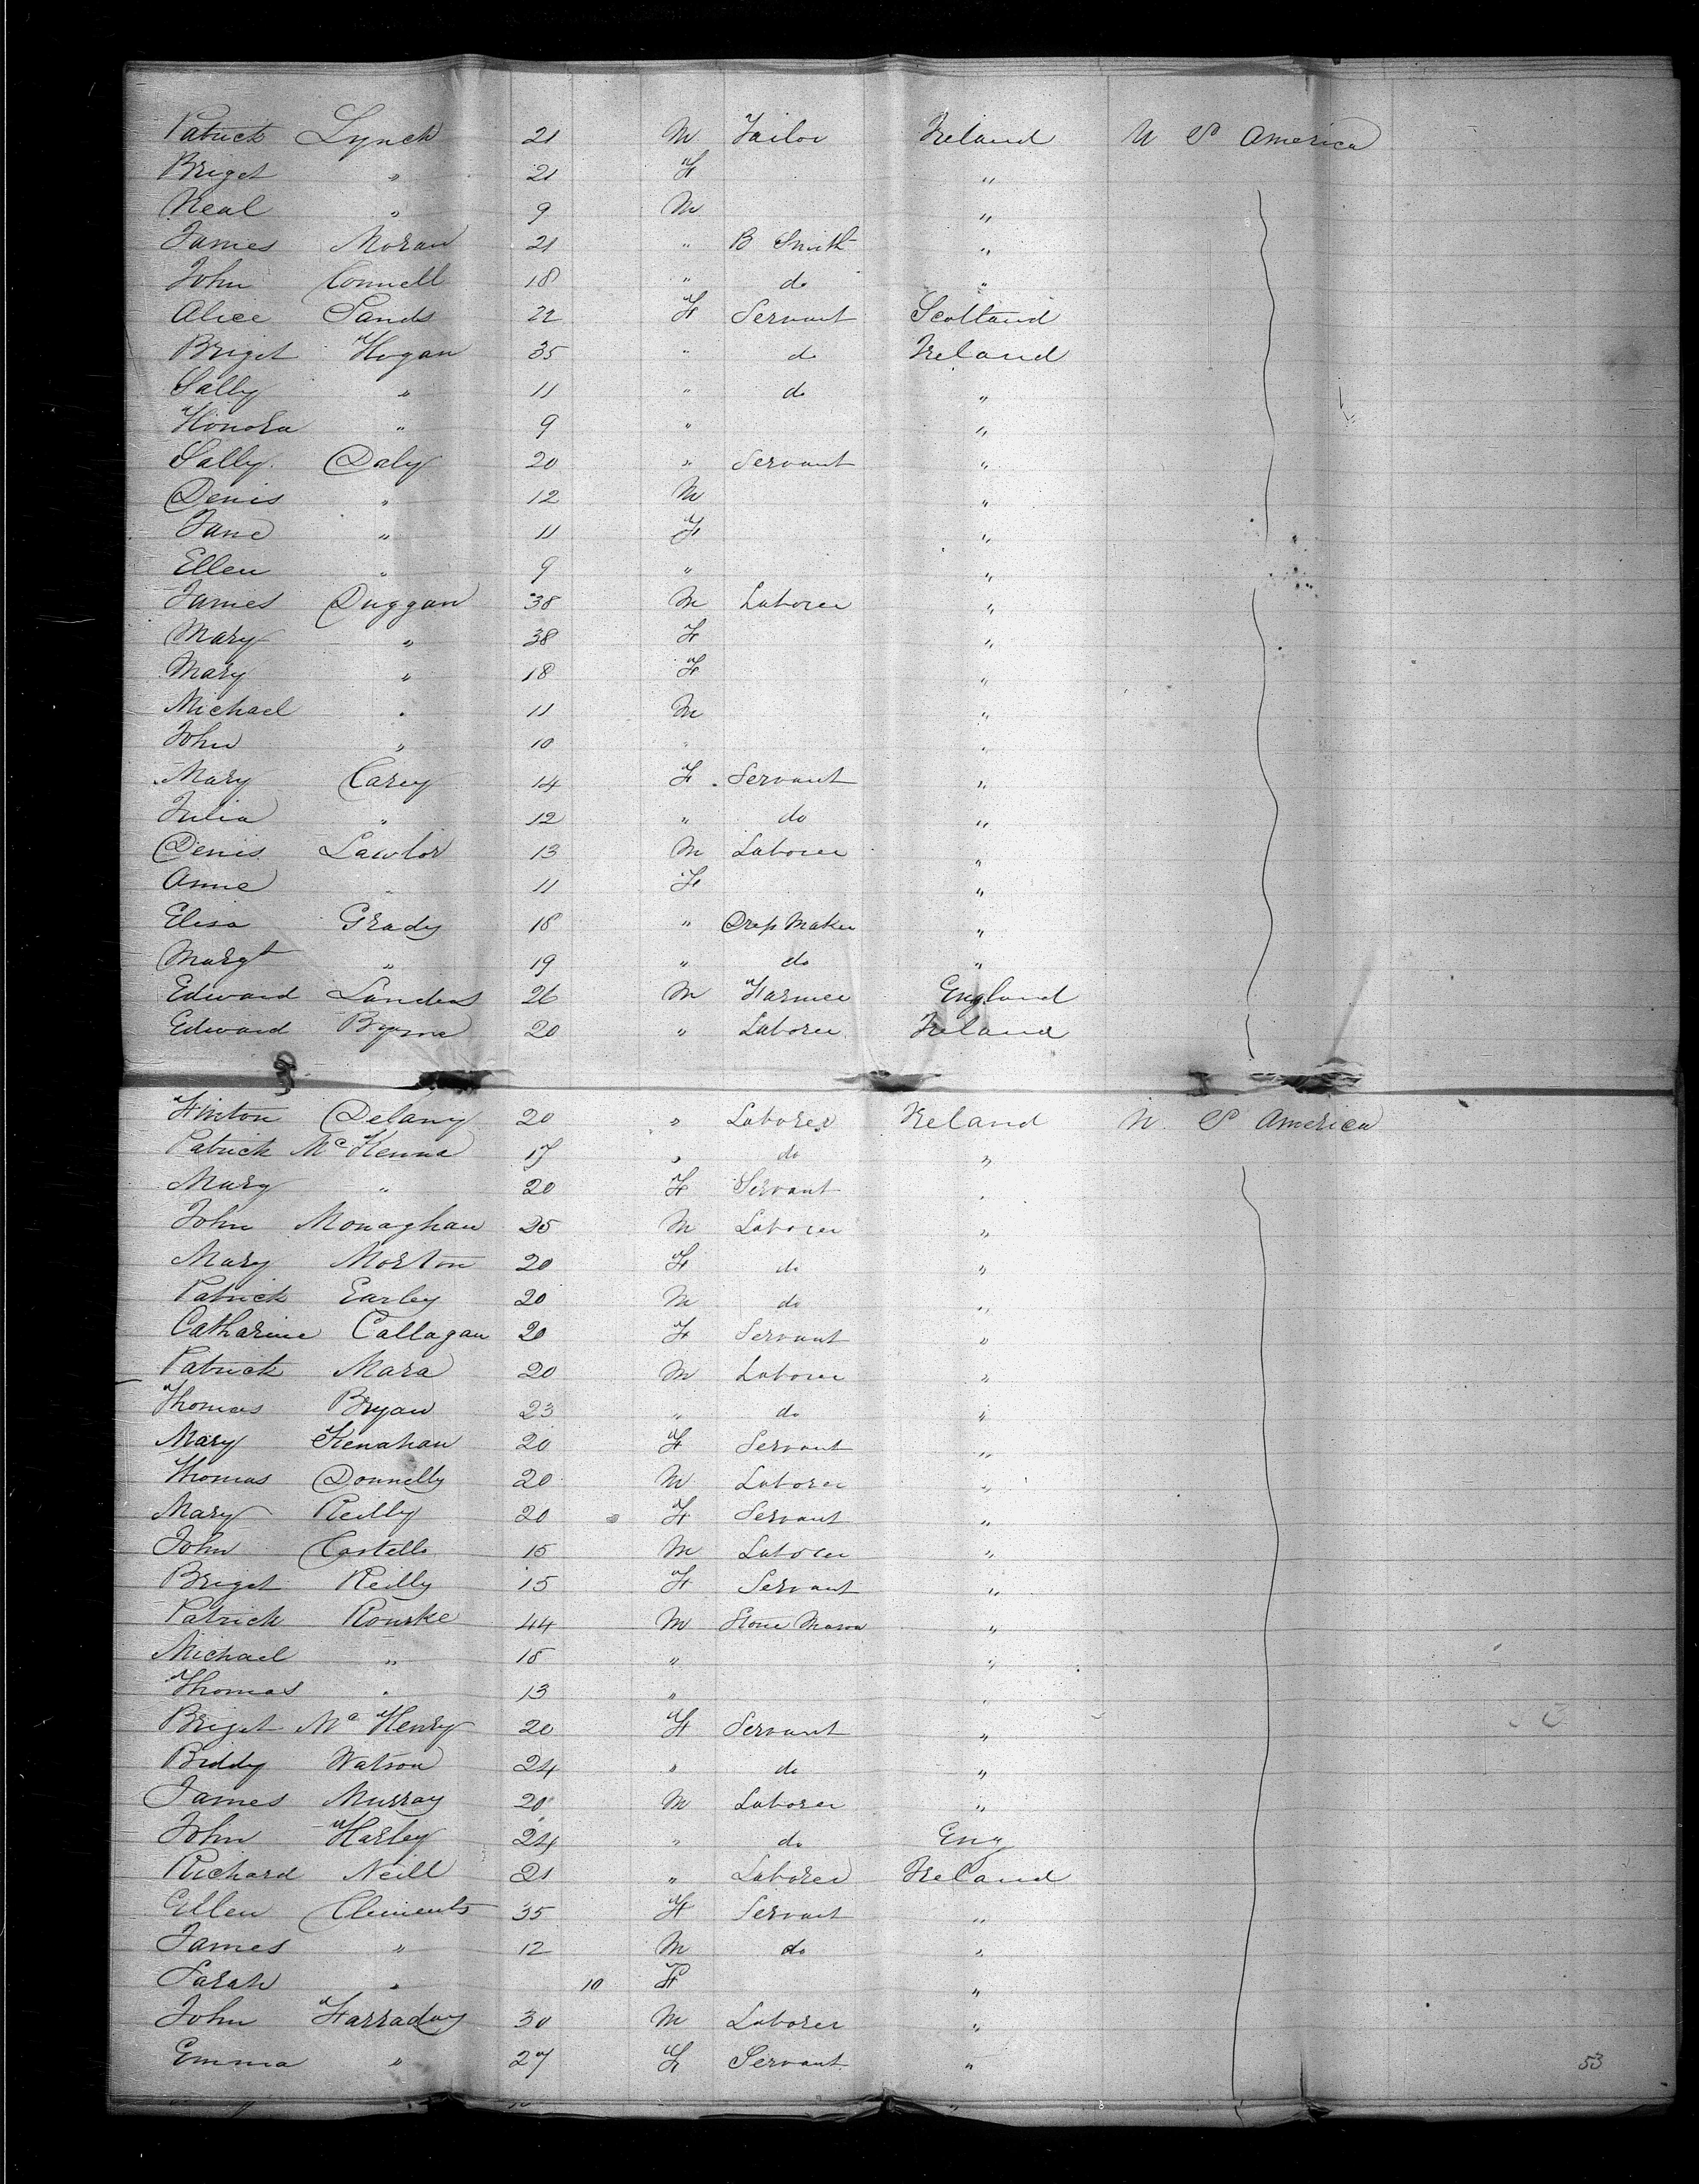 Patrick Lynch 21 M Tailor Ireland U S America
Briget " 21 F "
Neal " 9 M "
James Moran 21 " B Smith "
John Connell 18 " do "
Alice Sands 22 F Servant Scotland
Briget Hogan 35 " do Ireland
Sally " 11 " do "
Honora " 9 " "
Sally Daly 20 " Servant "
Denis " 12 M "
Jane " 11 F "
Ellen " 9 " "
James Duggan 38 M Laborer "
Mary " 38 F "
Mary " 18 F "
Michael " 11 M "
John " 10 " "
Mary Carey 14 F Servant "
Julia " 12 " do "
Denis Lawlor 13 M Laborer "
Anne " 11 F "
Elisa Grady 18 " Dress Maker "
Margt " 19 " do "
Edward Landers 26 M Farmer England
Edward Byrne 20 " Laborer Ireland
Finton Delany 20 " Laborer Ireland U S America
Patrick McKenna 17 " do "
Mary " 20 F Servant "
John Monaghan 25 M Laborer "
Mary Morton 20 F do "
Patrick Earley 20 M do "
Catharine Callagan 20 F Servant "
Patrick Mara 20 M Laborer "
Thomas Bryan 23 " do "
Mary Kenahan 20 F Servant "
Thomas Donnelly 20 M Laborer "
Mary Reilly 20 F Servant "
John Costello 15 M Laborer "
Briget Reilly 15 F Servant "
Patrick Rourke 44 M Stone Mason "
Michael " 15 " "
Thomas " 13 " "
Briget Mc Henry 20 F Servant "
Biddy Watson 24 " do "
James Murray 20 M Laborer "
John Harley 24 " do Eng
Richard Neill 21 " Laborer Ireland
Ellen Clements 35 F Servant "
James " 12 M do "
Sarah " 10 F "
John Farraday 30 M Laborer "
Emma " 27 F Servant "
53